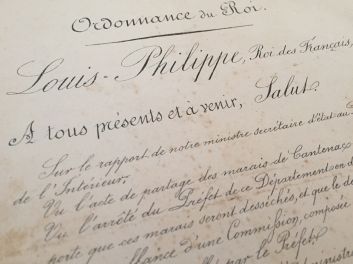 Ordonnance du Roi.
Louis-Philippe, Roi des Français,
A tous présents et à venir, Salut.
Sur le rapport de notre ministre secrétaire d'état au
de l'Intérieur,
Vu l'acte de partage des marais de Cantenac
Vu l'arrêté du Préfet de ce Département en d
porte que ces marais seront desséchés, et que le de
llance d'une Commission, composée
par le Préfet,